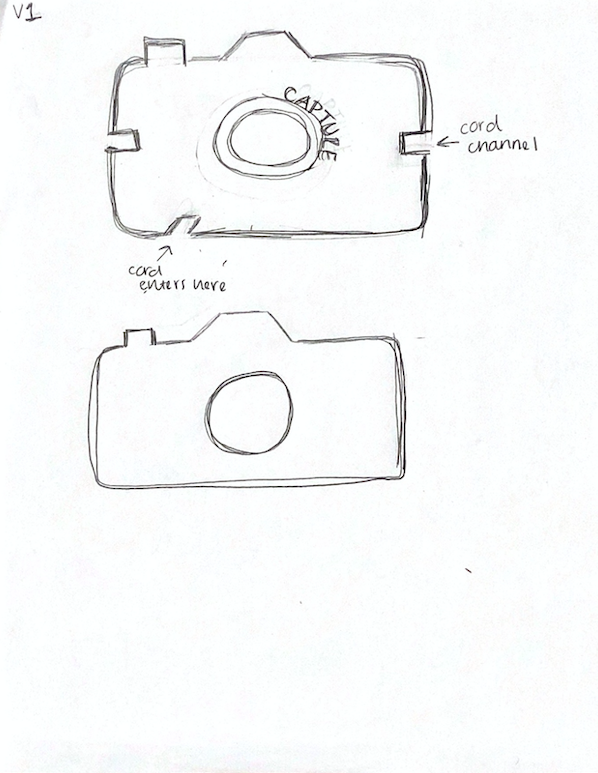 V1
CAPTURE
cord
channel
cord
enters here